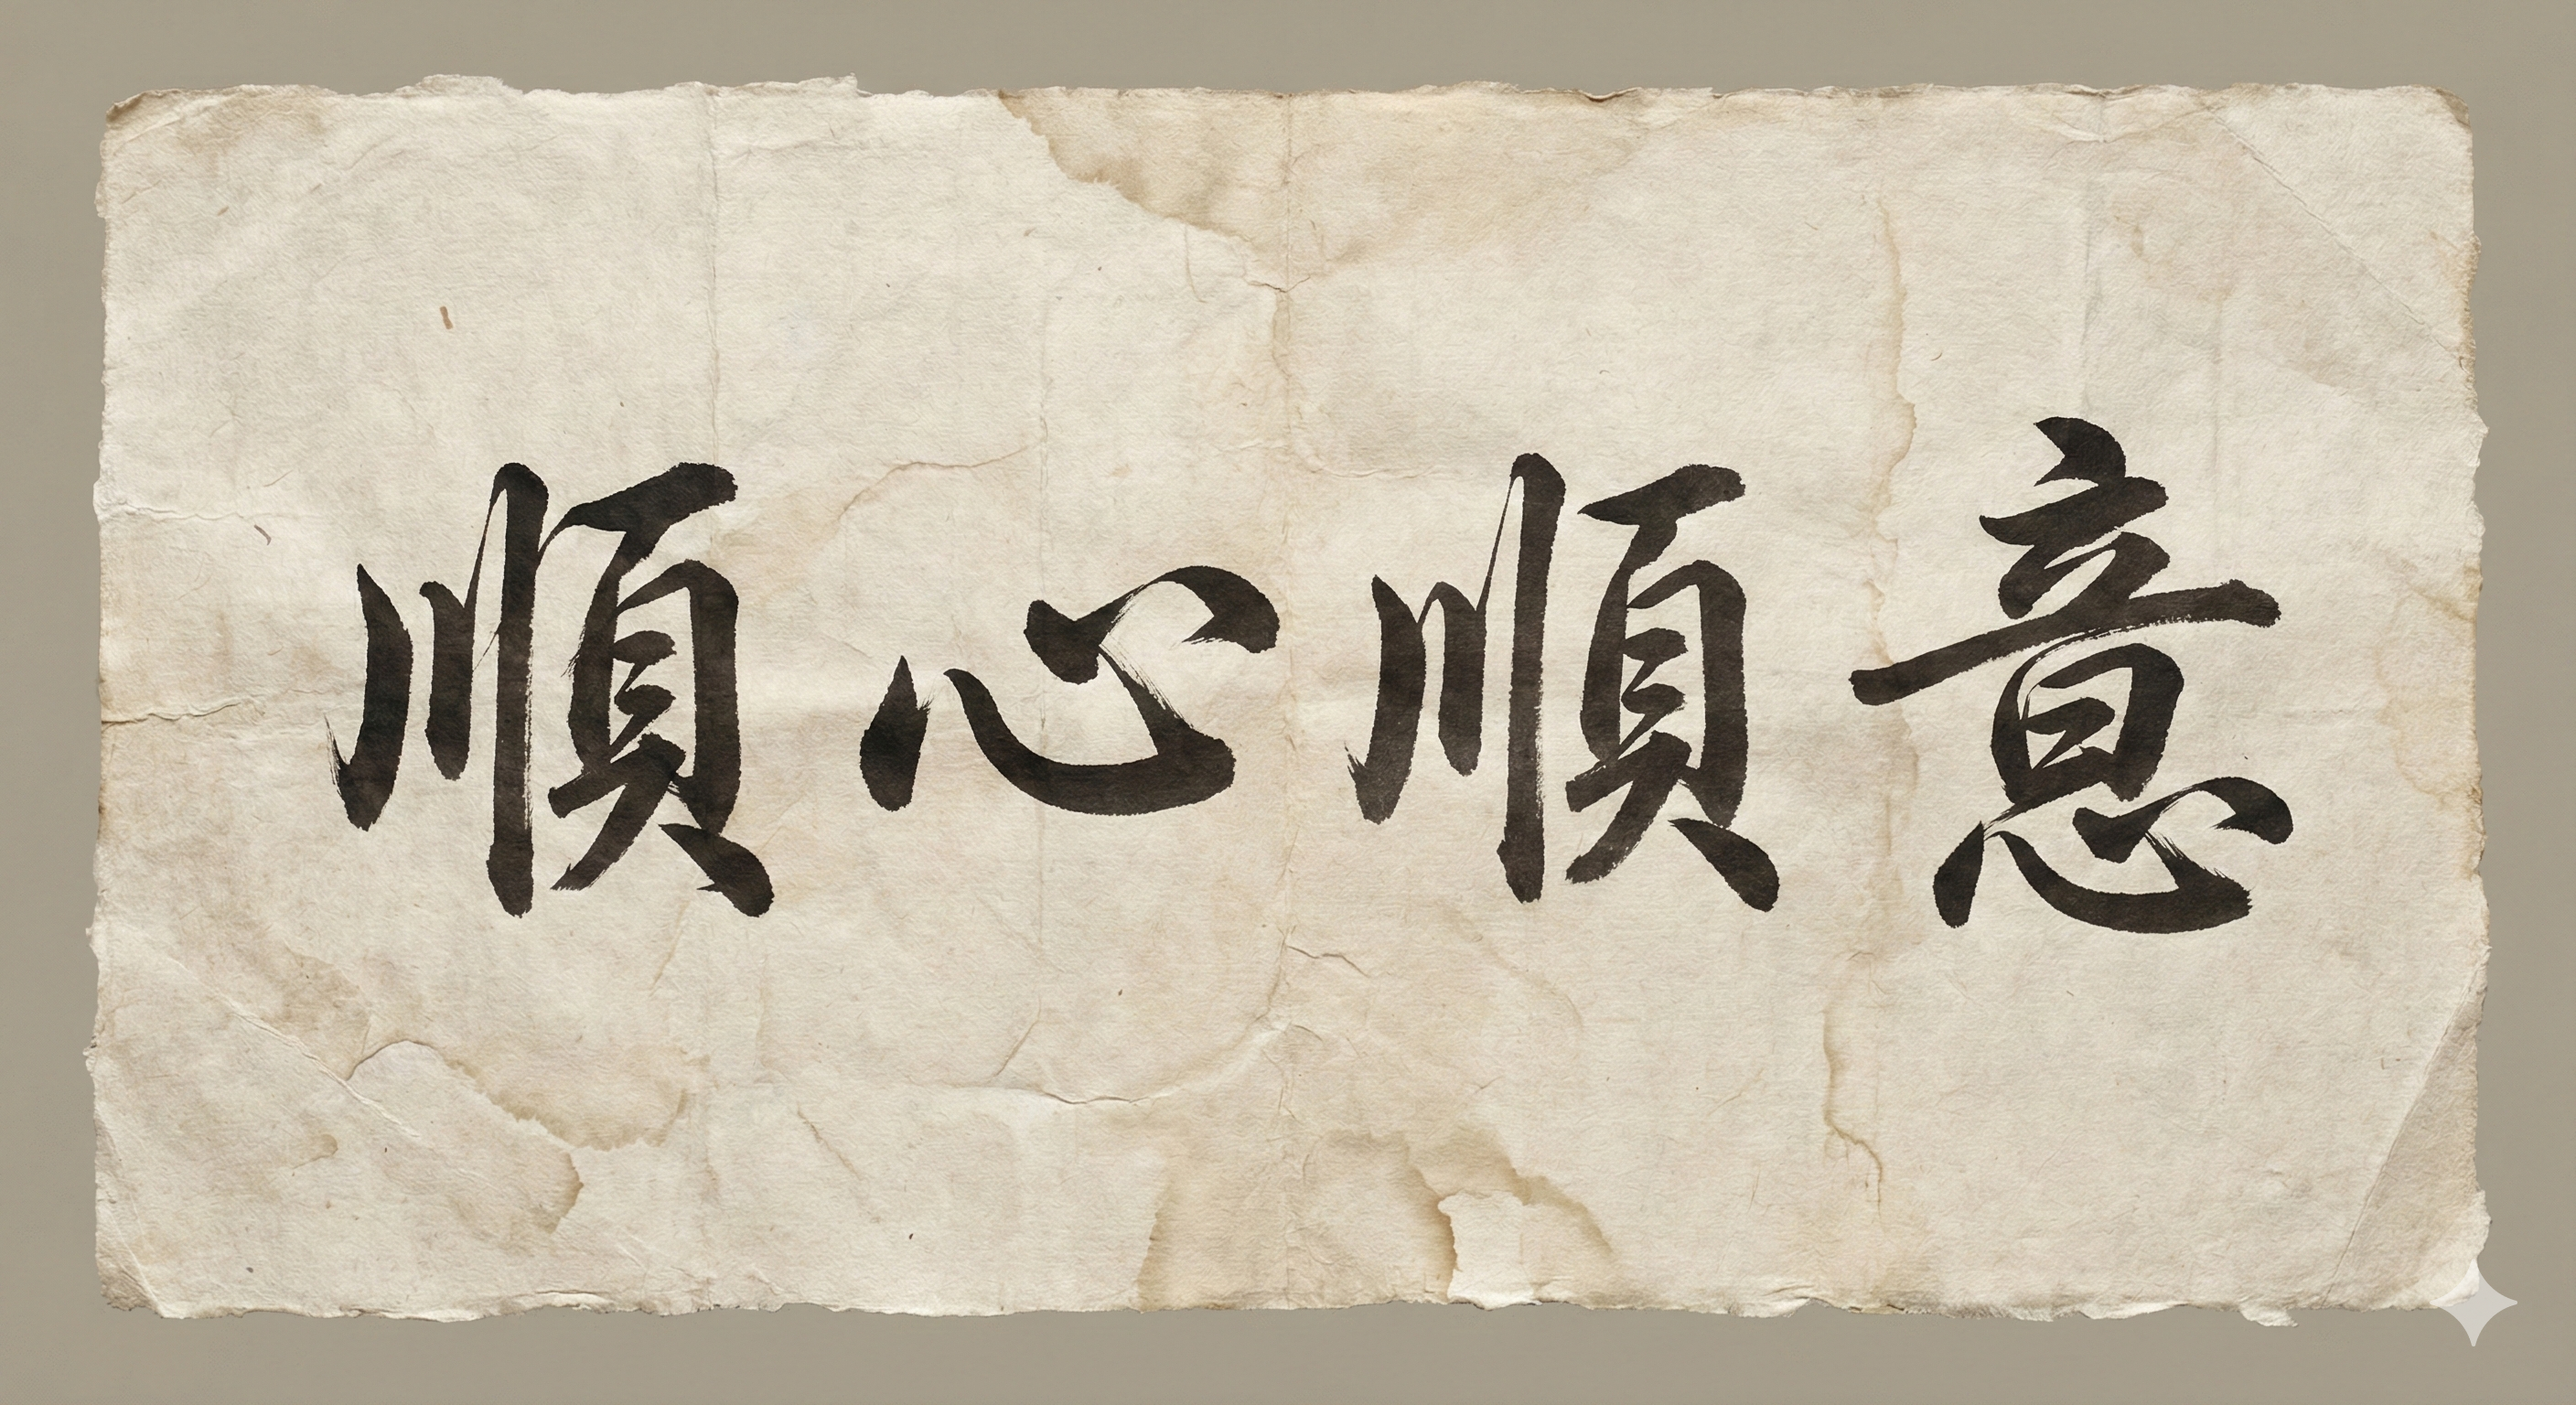 順心順意